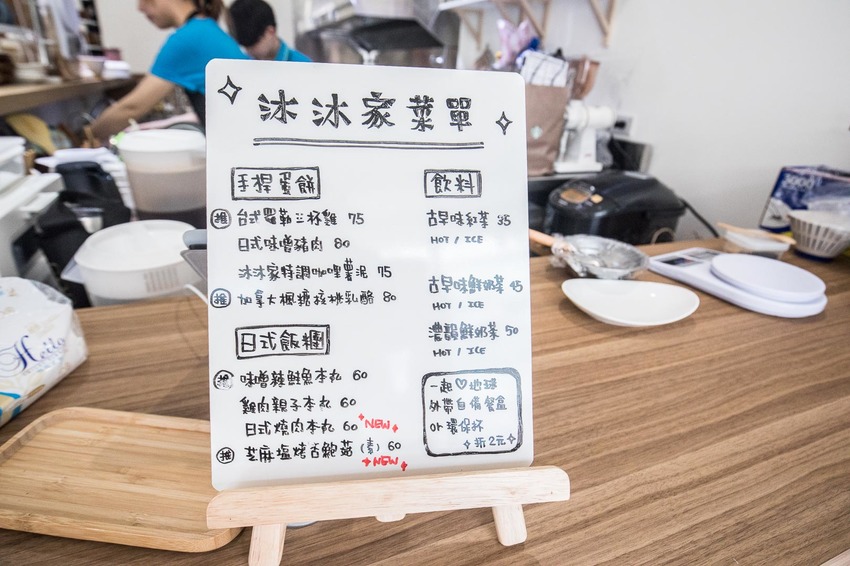 沐沐家菜單
手桿蛋餅
推 台式羅勒三杯雞 75
日式味噌豬肉 80
沐沐家特調咖哩薯泥 75
推 加拿大楓糖核桃乳酪 80
日式飯糰
推 味噌辣鮭魚本丸 60
雞肉親子本丸 60
日式燒肉本丸 60 NEW
推 芝麻塩烤杏鮑菇(素) 60
NEW
飲料
古早味紅茶 35
HOT / ICE
古早味鮮奶茶 45
HOT / ICE
濃韻鮮奶茶 50
HOT / ICE
一起♡地球
外帶自備餐盒
or 環保杯
折2元